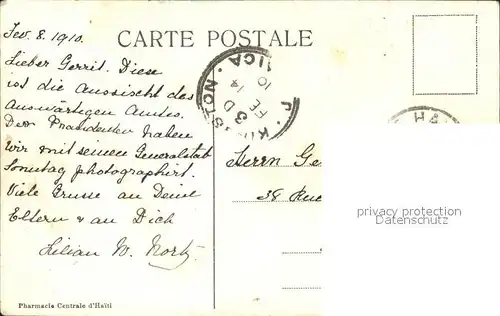 Fev. 8. 1910.
CARTE POSTALE
Lieber Gerrit. Diese
ist die Aussicht des
Auswärtigen Amtes.
Den Praesidenten haben
Wir mit seinem Generalstab
Sonntag photographirt.
Viele Grusse an Deine
Eltern & an Dich
Lilian W.
KINGSTON
FE 14
10
3 D
Herrn Ge
38 Rue
privacy protection
Datenschutz
Pharmacie Centrale d'Haïti